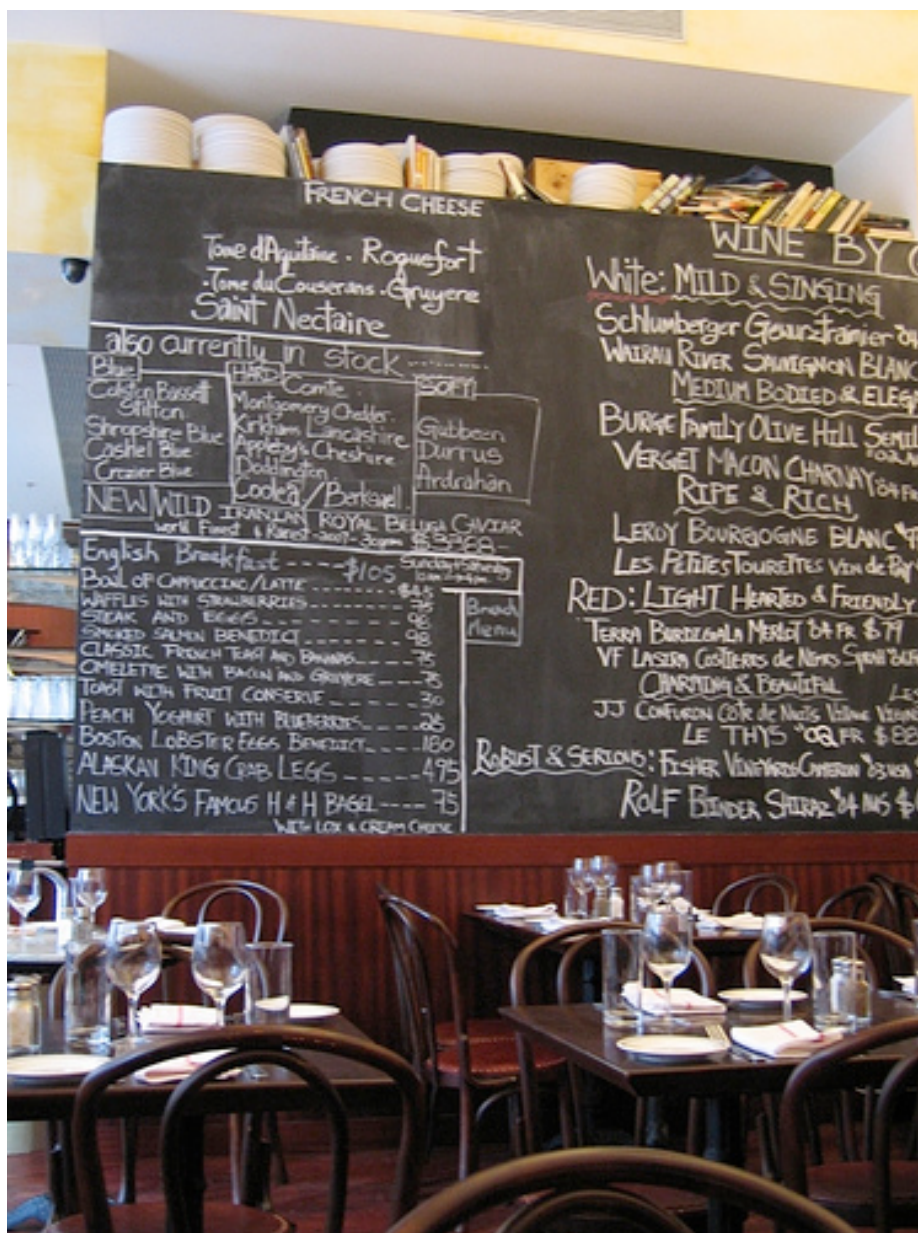 FRENCH CHEESE
Tome d'Aquitaine · Roquefort
· Tome du Couserans · Gruyere
Saint Nectaire
also currently in stock
Blue
Colston Bassett
Stilton
Shropshire Blue
Cashel Blue
Crozier Blue
HARD
Comte
Montgomery Chedder
Kirkham Lancashire
Appleby's Cheshire
Doddington
Coolea / Berkswell
SOFT
Gubbeen
Durrus
Ardrahan
NEW WILD IRANIAN ROYAL BELUGA CAVIAR
World Finest & Rarest - 2007 - 30 grams
English Breakfast ---- $105
Sunday + Saturday
BOWL OF CAPPUCCINO/LATTE
WAFFLES WITH STRAWBERRIES ---- 75
STEAK AND EGGS ---- 98
SMOKED SALMON BENEDICT ---- 98
CLASSIC FRENCH TOAST AND BANANAS ---- 75
OMELETTE WITH BACON AND GRUYERE --- 75
TOAST WITH FRUIT CONSERVE ---- 30
PEACH YOGHURT WITH BLUEBERRIES ---- 25
BOSTON LOBSTER EGGS BENEDICT ---- 180
ALASKAN KING CRAB LEGS ----- 495
NEW YORK'S FAMOUS H & H BAGEL ---- 75
WITH LOX & CREAM CHEESE
Brunch
Menu
WINE BY
White: MILD & SINGING
Schlumberger Gewurztraminer '04
WAIRAU RIVER SAUVIGNON BLANC
MEDIUM BODIED & ELEG
BURGE FAMILY OLIVE HILL SEMI
VERGET MACON CHARNAY '04 FR
RIPE & RICH
LEROY BOURGOGNE BLANC
LES PETITES TOURETTES VIN de Pay
RED: LIGHT HEARTED & FRIENDLY
TERRA BURDIGALA MERLOT '04 FR $79
VF LASIRA COSTIERES de NIMES
CHARMING & BEAUTIFUL
JJ CONFURON COTE de NUITS VILLAGE
LE THYS '02 FR $88
ROBUST & SERIOUS: FISHER VINEYARDS CAMERON '03 USA
ROLF BINDER SHIRAZ '04 AUS